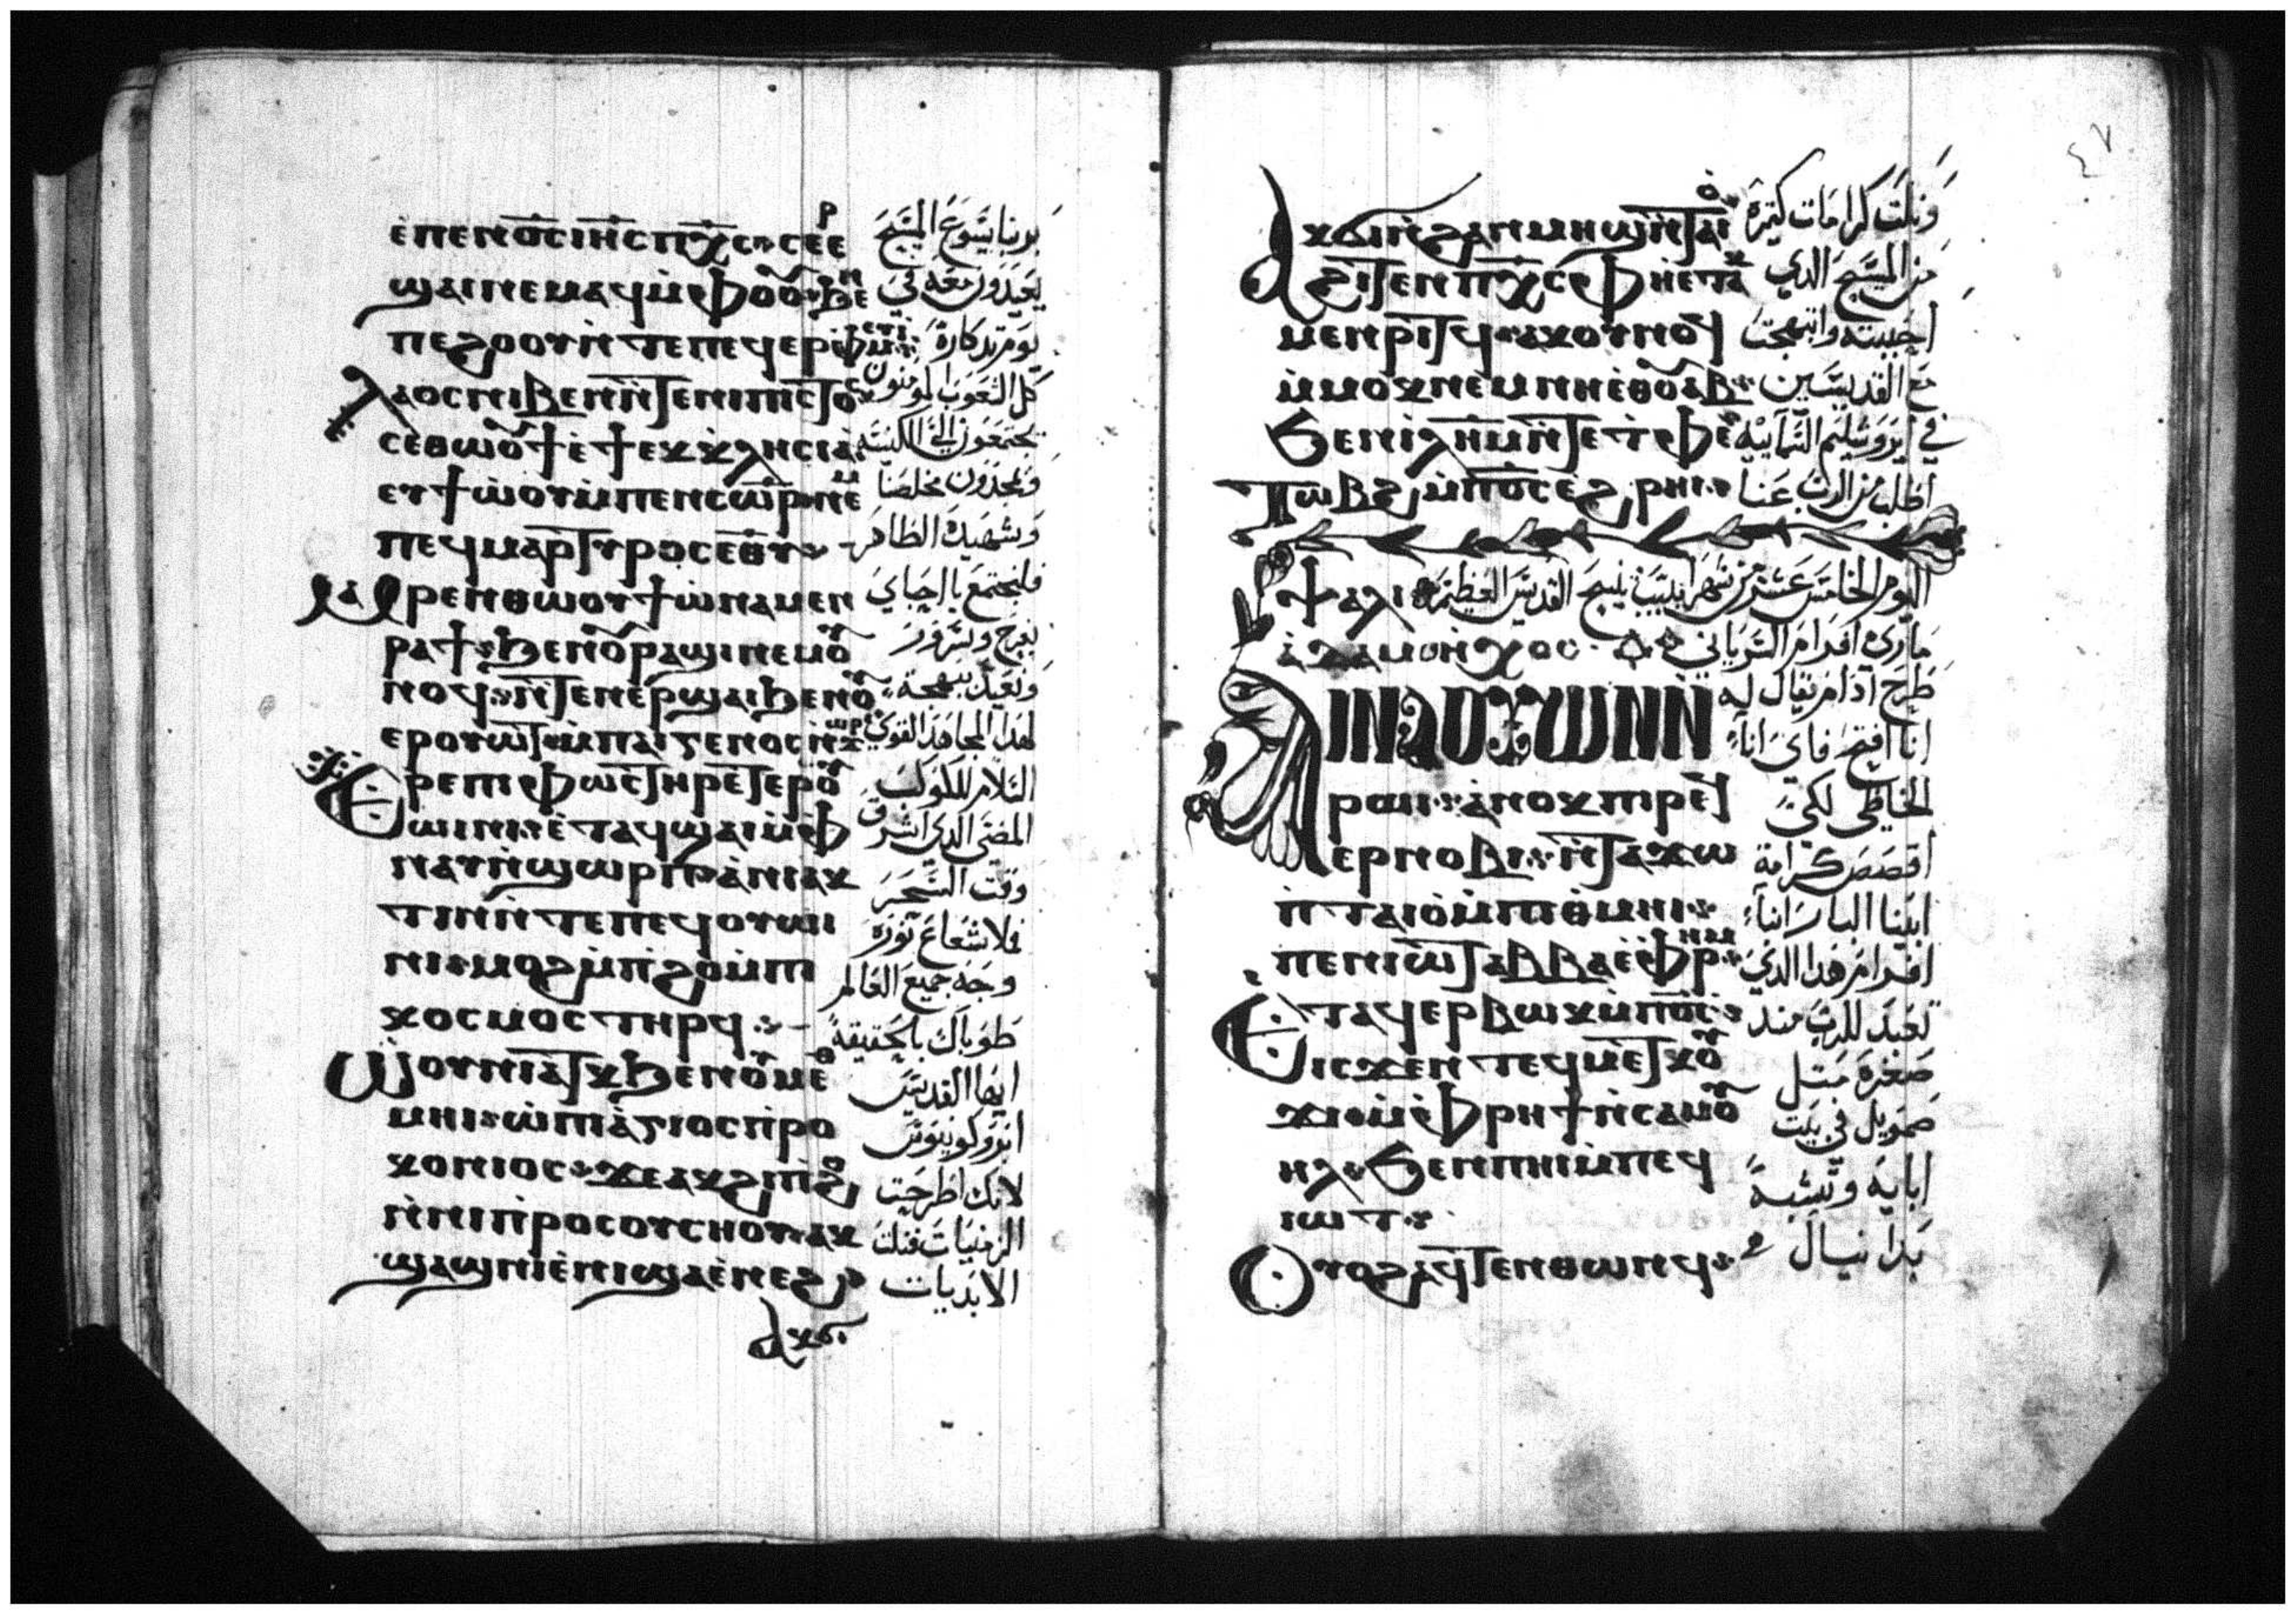 ⲉ̀ⲡⲉⲛⲟ̅ⲥ̅ ⲓⲏ̅ⲥ̅ ⲡⲭ̅ⲥ̅ ⲥⲉⲉⲣ
برنا يسوع المسيح
ϣⲁⲓ ⲛⲉⲙⲁϥ ⲙ̀ⲫⲟⲟⲩ ϧⲉⲛ
يعيدون معه في
ⲡⲉϩⲟⲟⲩ ⲛ̀ⲧⲉ ⲡⲉϥⲉⲣⲫⲙⲉⲩⲓ
يوم تدكاره
ⲗⲁⲟⲥ ⲛⲓⲃⲉⲛ ⲛ̀ⲧⲉ ⲛⲓⲡⲓⲥⲧⲟⲥ
كل الشعوب المومنون
ⲥⲉⲑⲱⲟⲩϯ ⲉ̀ϯⲉⲕⲕⲗⲏⲥⲓⲁ
يجتمعون الى الكنيسه
ⲉⲩϯⲱ̀ⲟⲩ ⲙ̀ⲡⲉⲛⲥⲱⲣ ⲛⲉⲙ
ويمجدون مخلصنا
ⲡⲉϥⲙⲁⲣⲧⲩⲣⲟⲥ ⲉⲑⲩ
وشهيده الطاهر
ⲙⲁⲣⲉⲛⲑⲱⲟⲩϯ ⲱ̀ ⲛⲁⲙⲉⲛ
فلنجتمع يا احباي
ⲣⲁϯ ϧⲉⲛ ⲟⲩⲣⲁϣⲓ ⲛⲉⲙ ⲟⲩ
بفرح وسرور
ⲛⲟϥ ⲛ̀ⲧⲉⲛⲉⲣϣⲁⲓ ϧⲉⲛ ⲟⲩ
ونعيد ببهجة
ⲉⲣⲟⲩⲱⲧ ⲙ̀ⲡⲁⲓⲅⲉⲛⲟⲥ ⲛ̀ϫⲱⲣⲓ
لهدا المجاهد القوي
ⲭⲉⲣⲉ ⲡⲓⲫⲱⲥⲧⲏⲣ ⲉⲧⲉⲣⲟⲩ
السلام للكوكب
ⲱⲓⲛⲓ ⲉ̀ⲧⲁϥϣⲁⲓ ⲙ̀ⲫ
المضي الدي اشرق
ⲛⲁⲩ ⲛ̀ϣⲱⲣⲡ ⲁ̀ ⲛⲓⲁⲕ
وقت السحر
ⲧⲓⲛ ⲛ̀ⲧⲉ ⲡⲉϥⲟⲩⲱⲓ
فملا شعاع نوره
ⲛⲓ ⲙⲟϩ ⲙ̀ⲡ̀ϩⲟ ⲙ̀ⲡⲓ
وجه جميع العالم
ⲕⲟⲥⲙⲟⲥ ⲧⲏⲣϥ
طوباك بالحقيقة
ⲱⲟⲩⲛⲓⲁⲧⲕ ϧⲉⲛ ⲟⲩⲙⲉⲑ
ايها القديس
ⲙⲏⲓ ⲱ̀ ⲡⲓⲁ̀ⲅⲓⲟⲥ ⲡⲣⲟ
ابروكونيوس
ⲕⲟⲛⲓⲟⲥ ϫⲉ ⲁⲕϩⲓⲡ̀ϩⲟ
لانك اطرحت
ⲛ̀ⲛⲓⲡⲣⲟⲥⲟⲩⲥⲏⲟⲩ ⲁⲕ
الزمنيات فنلت
ϣⲁϣⲛⲓ ⲉ̀ⲛⲓϣⲁⲉ̀ⲛⲉϩ
الابديات
ⲁⲕϭⲓ
٤٧
ⲁⲕϭⲓ ⲛ̀ϩⲁⲛⲙⲏϣ ⲛ̀ⲧⲁⲓⲟ
ونلت كرامات كتيره
ϩⲓⲧⲉⲛ ⲡⲭ̅ⲥ̅ ⲫⲏⲉⲧⲁⲕ
من المسيح الدي
ⲙⲉⲛⲣⲓⲧϥ ⲁⲕⲟⲩⲛⲟϥ
احببته وابتهجت
ⲙ̀ⲙⲟⲕ ⲛⲉⲙ ⲛⲏⲉⲑⲟⲩⲁⲃ
مع القديسين
ϧⲉⲛ ⲓⲗⲏⲙ ⲛ̀ⲧⲉ ⲧ̀ⲫⲉ
في ايروشليم السمائية
ⲧⲱⲃϩ ⲙ̀ⲡⲟ̅ⲥ̅ ⲉϩⲣⲏⲓ
اطلب من الرب عنا
اليوم الخامس عشر من شهر ابيب نييح القديس العظيم
ⲯⲁⲗⲓ
ماري افرام السرياني
ⲁⲇⲁⲙ ⲟⲛ ⲏⲭⲟⲥ
طرح آدام يقال له
ⲁⲓⲛⲁⲟⲩⲱⲛ ⲛ̀
انا افتح فاي انا
ⲣⲱⲓ ⲁ̀ⲛⲟⲕ ⲡⲓⲣⲉϥ
الخاطي لكي
ⲉⲣⲛⲟⲃⲓ ⲛ̀ⲧⲁϫⲱ
اقصص كرامة
ⲙ̀ⲡⲧⲁⲓⲟ ⲙ̀ⲡⲓⲑⲙⲏⲓ
ابينا البار انبا
ⲡⲉⲛⲓⲱⲧ ⲁⲃⲃⲁ ⲉ̀ⲫⲣⲏⲙ
افرام هدا الدي
ⲉⲧⲁϥⲉⲣⲃⲱⲕ ⲙ̀ⲡⲟ̅ⲥ̅
تعبد للرب مند
ⲓⲥϫⲉⲛ ⲧⲉϥⲙⲉⲧⲕⲟⲩ
صغره متل
ϫⲓ ⲙ̀ⲫⲣⲏϯ ⲛ̀ⲥⲁⲙⲟⲩ
صمويل في بيت
ⲏⲗ ϧⲉⲛ ⲡⲏⲓ ⲙ̀ⲡⲉϥ
ابايه وتشبه
ⲓⲱⲧ
ⲟⲩⲟϩ ⲁϥⲧⲉⲛⲑⲱⲛϥ